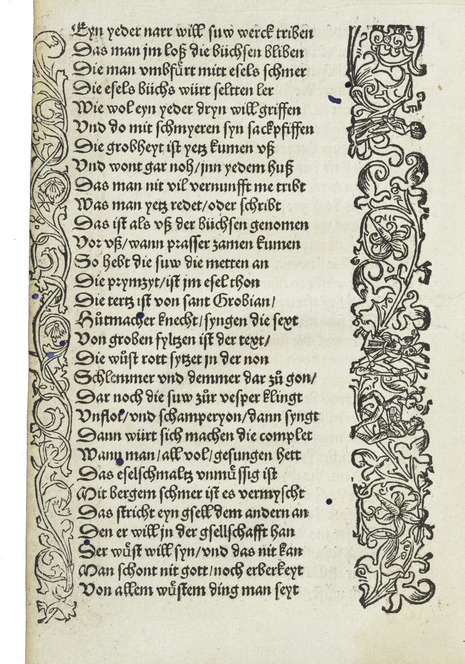 Eyn yeder narr will suw werck triben
Das man jm loß die büchsen bliben
Die man vmbfuͤrt mitt esels schmer
Die esels büchs würt seltten ler
Wie wol eyn yeder dryn will griffen
Vnd do mit schmyeren syn sackpfiffen
Die grobheyt ist yetz kumen vß
Vnd wont gar noh/jnn yedem huß
Das man nit vil vernunfft me tribt
Was man yetz redet/oder schribt
Das ist als vß der büchsen genomen
Vor vß/wann prasser zamen kumen
So hebt die suw die metten an
Die prymzyt/ist jm esel thon
Die tertz ist von sant Grobian/
Hůtmacher knecht/syngen die sext
Von groben fyltzen ist der text/
Die wuͤst rott sytzet jn der non
Schlemmer vnd demmer dar zů gon/
Dar noch die suw zůr vesper klingt
Vnflot/vnd schamperyon/dann syngt
Dann würt sich machen die complet
Wann man/all vol/gesungen hett
Das eselschmaltz vnmuͤssig ist
Mit bergem schmer ist es vermyscht
Das stricht eyn gsell dem andern an
Den er will jn der gsellschafft han
Der wuͤst will syn/vnd das nit kan
Man schont nit gott/noch erberkeyt
Von allem wuͤstem ding man seyt